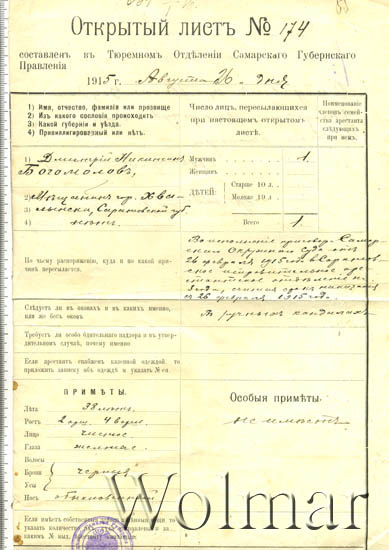 Открытый листъ № 174
составленъ въ Тюремномъ Отдѣленіи Самарскаго Губернскаго
Правленія
1915 г. Августа 26 дня
1) Имя, отчество, фамилія или прозвище
2) Изъ какого сословія происходитъ
3) Какой губерніи и уѣзда.
4) Привиллегированный или нѣтъ.
Число лицъ, пересылающихся
при настоящемъ открытомъ
листѣ.
Наименованіе
членовъ семей-
ства арестанта
слѣдующихъ
при немъ.
1) Дмитрій Никитинъ
Богомоловъ,
2) Мѣщанинъ гор. Хва-
3) лынска, Саратовской губ.
4) нѣтъ.
Мужчинъ 1
Женщинъ
ДѢТЕЙ:
Старше 10 л.
Моложе 10 л.
Всего 1
По чьему распоряженію, куда и по какой при-
чинѣ пересылается.
Во исполненіе приговора Самар-
скаго Окружнаго Суда отъ
26 февраля 1915 г. въ
исправительное аре-
стантское отдѣленіе
года, считая срокъ наказанія
съ 26 февраля 1915 года.
Слѣдуетъ ли въ оковахъ и въ какихъ именно,
или же безъ оковъ
Въ ручныхъ кандалахъ
Требуетъ ли особо бдительнаго надзора и въ утвер-
дительномъ случаѣ, почему именно
Если арестантъ снабженъ казенной одеждой, то
приложить записку объ одеждѣ и указать № ея
ПРИМѢТЫ:
Лѣта 38 лѣтъ
Ростъ 2 арш. 4 верш.
Лицо чистое
Глаза
Волосы
Брови черные
Усы
Носъ обыкновенный
Особыя примѣты:
не имѣетъ
Wolmar